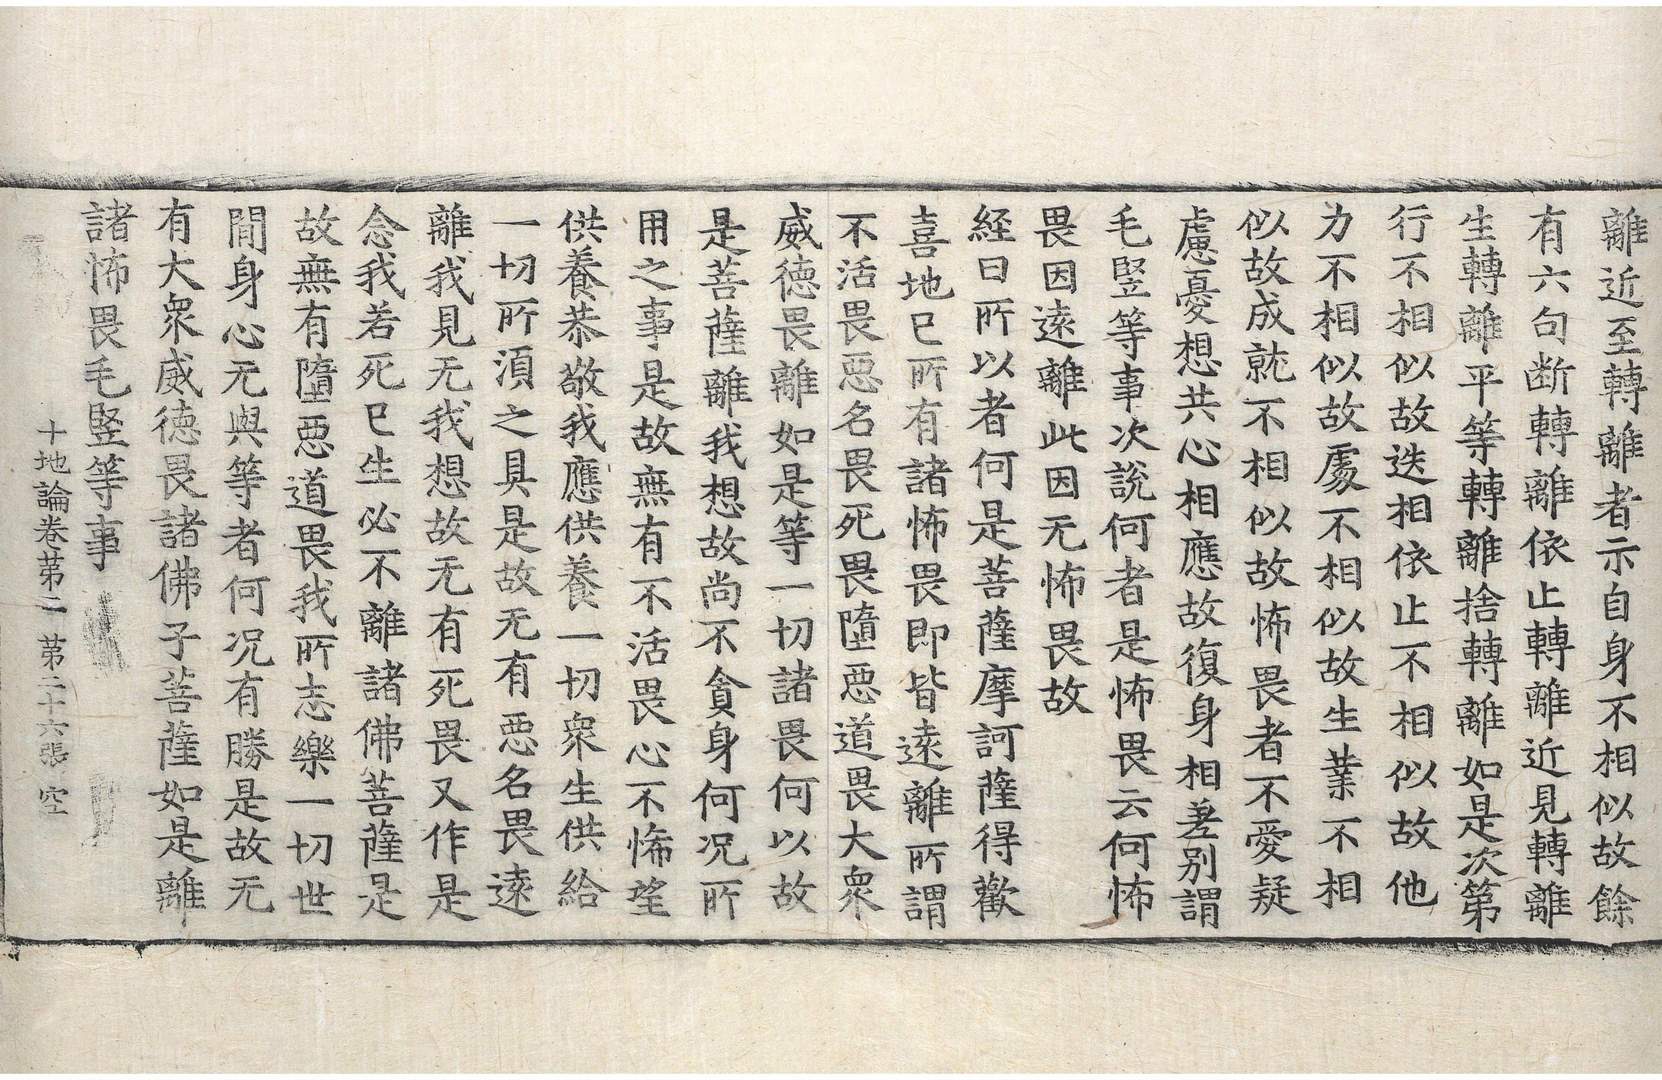 離近至轉離者示自身不相似故餘
有六句断轉離依止轉離近見轉離
生轉離平等轉離捨轉離如是次第
行不相似故迭相依止不相似故他
力不相似故處不相似故生業不相
似故成就不相似故怖畏者不愛疑
慮憂想共心相應故復身相差別謂
毛竪等事次說何者是怖畏云何怖
畏因遠離此因无怖畏故
経曰所以者何是菩薩摩訶薩得歡
喜地已所有諸怖畏即皆遠離所謂
不活畏惡名畏死畏墮惡道畏大衆
威德畏離如是等一切諸畏何以故
是菩薩離我想故尚不貪身何況所
用之事是故無有不活畏心不悕望
供養恭敬我應供養一切衆生供給
一切所湏之具是故无有惡名畏遠
離我見无我想故无有死畏又作是
念我若死已生必不離諸佛菩薩是
故無有墮惡道畏我所志樂一切世
間身心无與等者何況有勝是故无
有大衆威德畏諸佛子菩薩如是離
諸怖畏毛竪等事
十地論卷苐二 苐二十六張 空